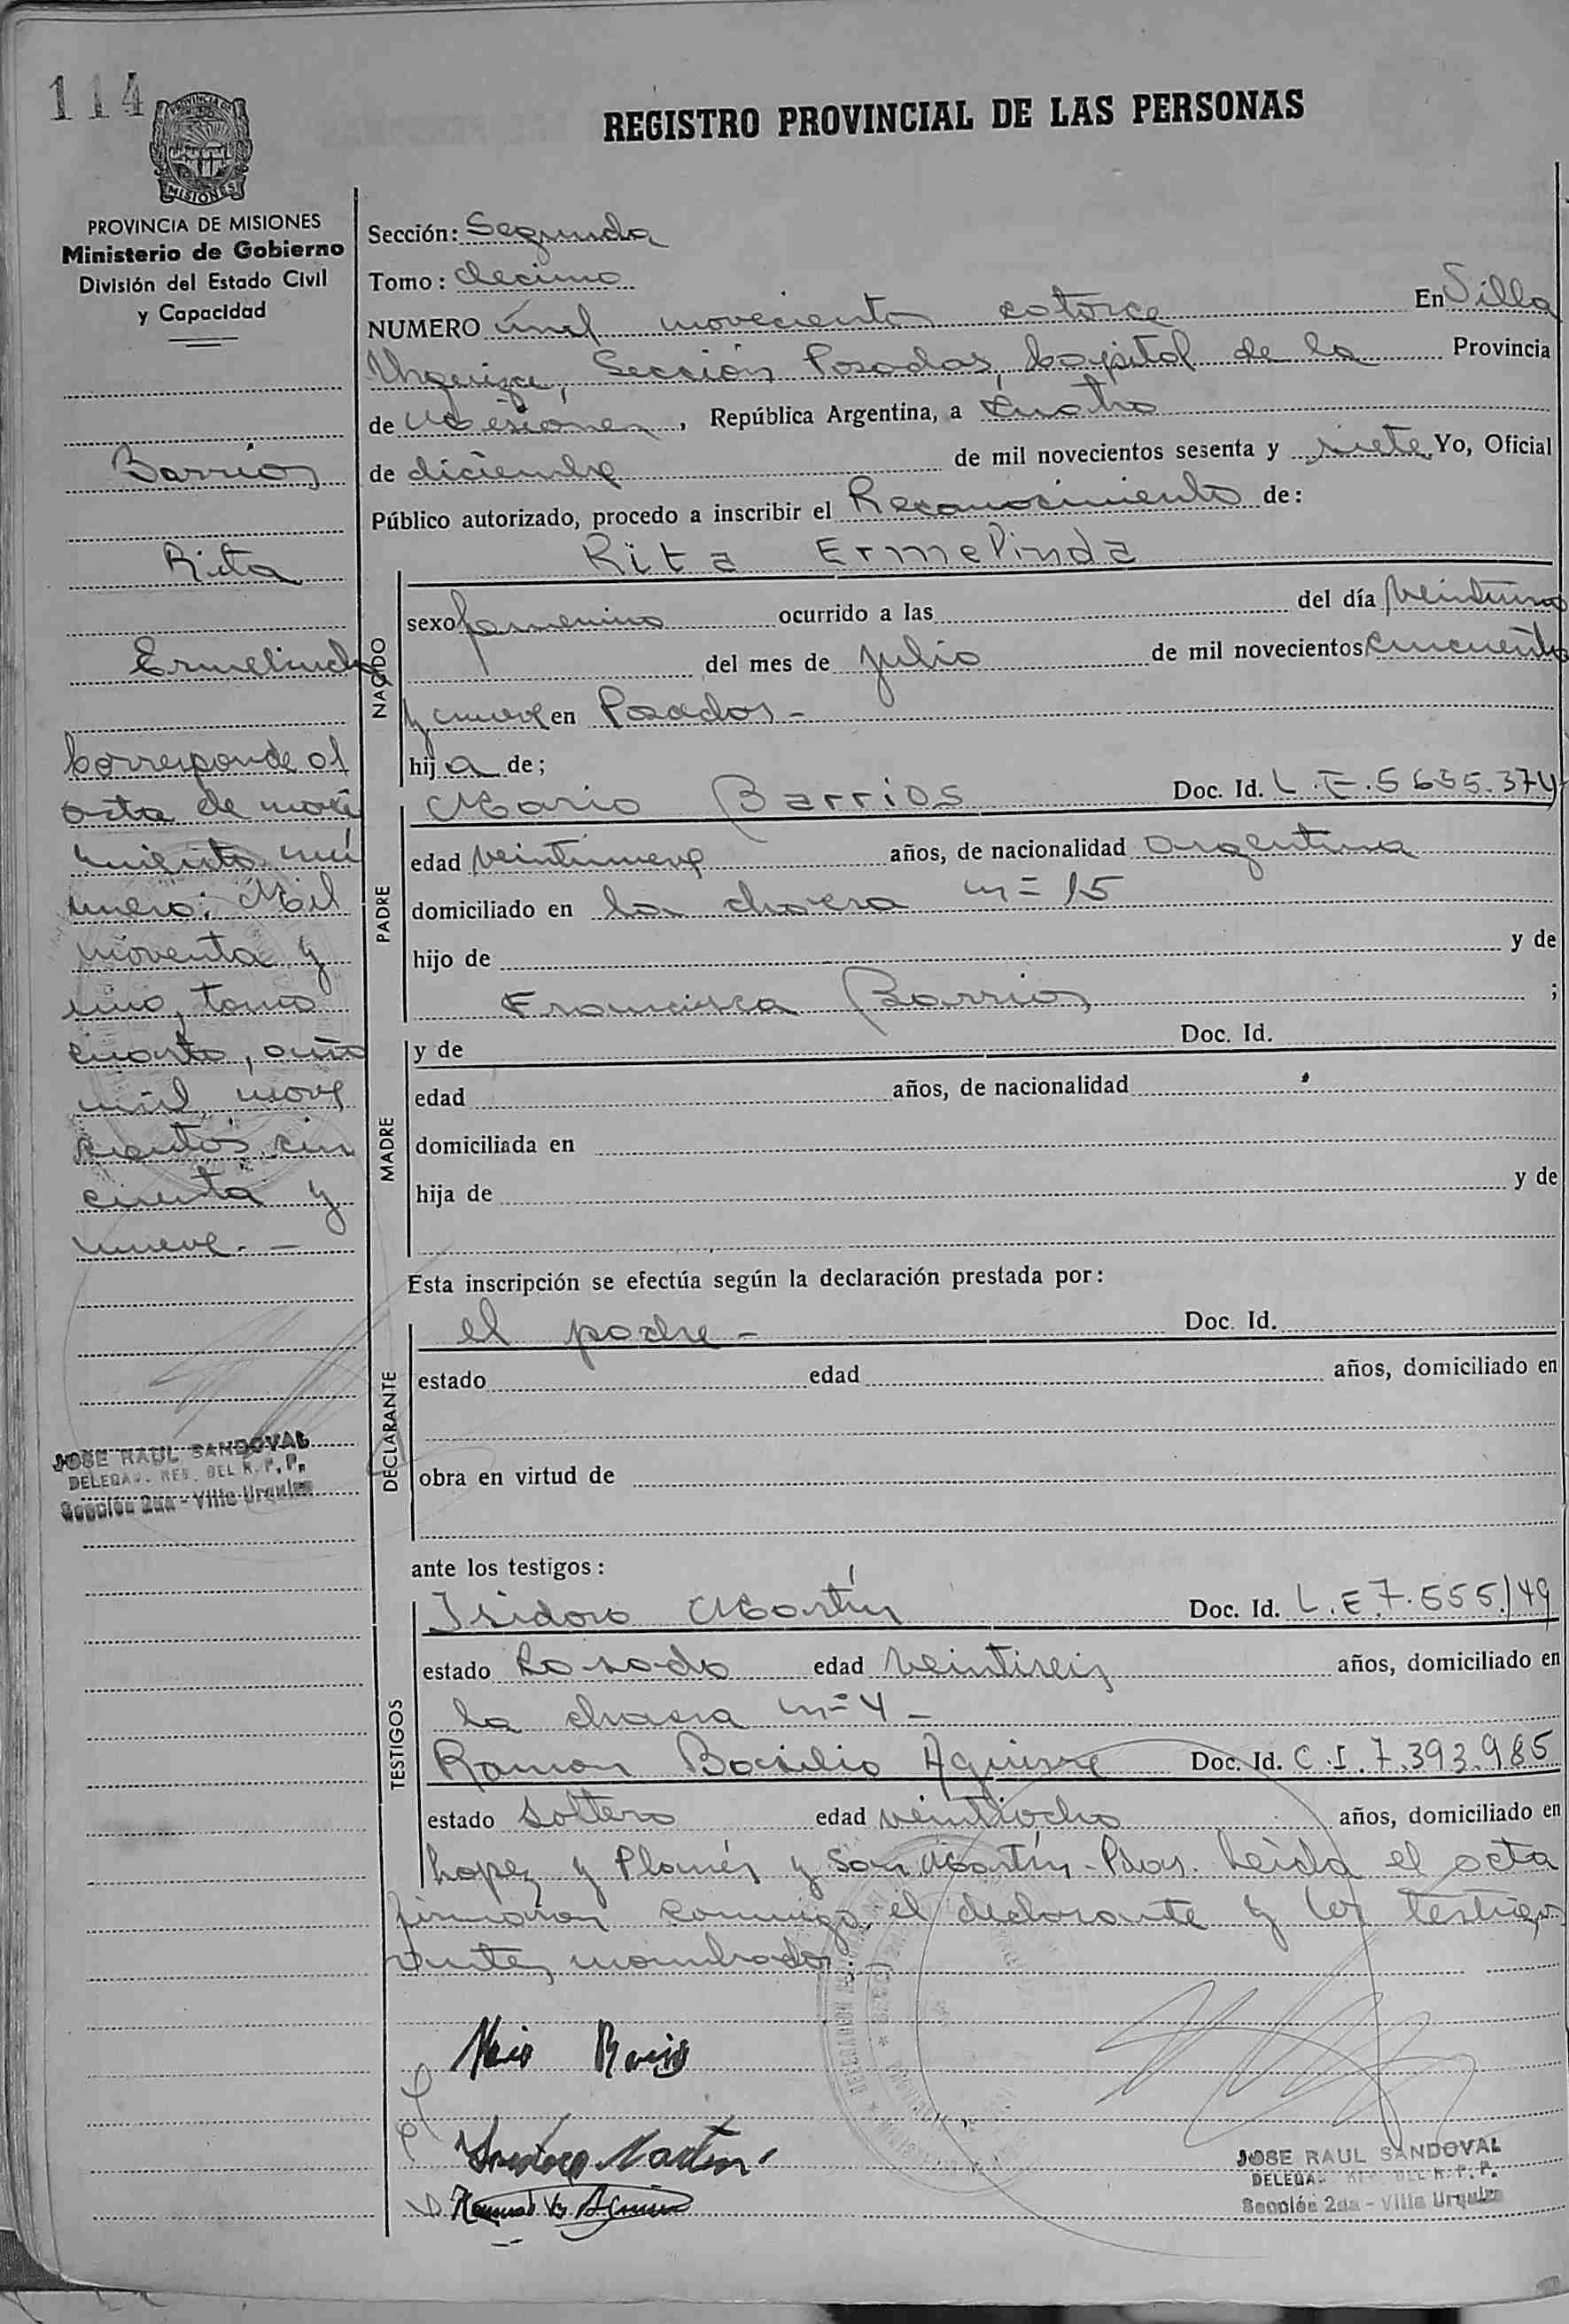 114
PROVINCIA DE
MISIONES
REGISTRO PROVINCIAL DE LAS PERSONAS
PROVINCIA DE MISIONES
Ministerio de Gobierno
División del Estado Civil
y Capacidad
Barrios
Rita
Ermelinda
Corresponde al
acta de naci
miento nú
mero: Mil
noventa y
uno, tomo
cuarto, año
mil nove
cientos cin
cuenta y
nueve. -
JOSE RAUL SANDOVAL
DELEGAD. RES. DEL R. P. P.
Sección 2da - Villa Urquiza
Sección: Segunda
Tomo: decimo
NUMERO mil novecientos catorce En Villa
Urquiza, Sección Posadas, Capital de la Provincia
de Misiones, República Argentina, a cuatro
de diciembre de mil novecientos sesenta y siete Yo, Oficial
Público autorizado, procedo a inscribir el Reconocimiento de:
Rita Ermelinda
NACIDO
sexo femenino ocurrido a las del día veintiuno
del mes de julio de mil novecientos cincuenta
y nueve en Posadas -
hija de;
PADRE
Mario Barrios Doc. Id. L.E. 5635.374
edad veintinueve años, de nacionalidad argentina
domiciliado en la chacra n= 15
hijo de y de
Francisca Barrios ;
MADRE
y de Doc. Id.
edad años, de nacionalidad
domiciliada en
hija de y de
Esta inscripción se efectúa según la declaración prestada por:
DECLARANTE
el padre - Doc. Id.
estado edad años, domiciliado en
obra en virtud de
ante los testigos:
TESTIGOS
Isidoro Martín Doc. Id. L.E. 7.555.149
estado Casado edad veintiseis años, domiciliado en
la chacra n=4 -
Ramon Basilio Aguirre Doc. Id. C.I. 7.393.985
estado soltero edad veintiocho años, domiciliado en
Lopez y Planes y San Martín - Pdas. Leída el acta
firmaron conmigo el declarante y los testigos
antes nombrados. -
Isidoro Martin
JOSE RAUL SANDOVAL
DELEGA. DEL R. P. P.
Sección 2da - Villa Urquiza